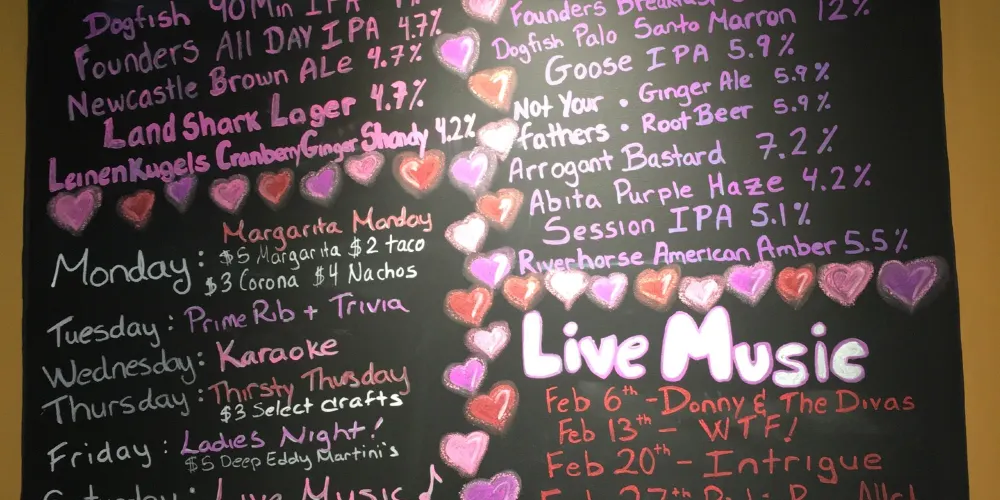 Dogfish 90 Min IPA
Founders All DAY IPA 4.7%
Newcastle Brown ALe 4.7%
Land Shark Lager 4.7%
LeinenKugels Cranberry Ginger Shandy 4.2%
Margarita Monday
Monday: $5 Margarita $2 taco
$3 Corona $4 Nachos
Tuesday: Prime Rib + Trivia
Wednesday: Karaoke
Thursday: Thirsty Thursday
$3 Select drafts
Friday: Ladies Night!
$5 Deep Eddy Martini's
Saturday: Live Music
Founders Breakfast
Dogfish Palo Santo Marron 12%
Goose IPA 5.9%
Not Your • Ginger Ale 5.9%
fathers • Root Beer 5.9%
Arrogant Bastard 7.2%
Abita Purple Haze 4.2%
Session IPA 5.1%
Riverhorse American Amber 5.5%
Live Music
Feb 6th - Donny & The Divas
Feb 13th - WTF!
Feb 20th - Intrigue
Feb 27th